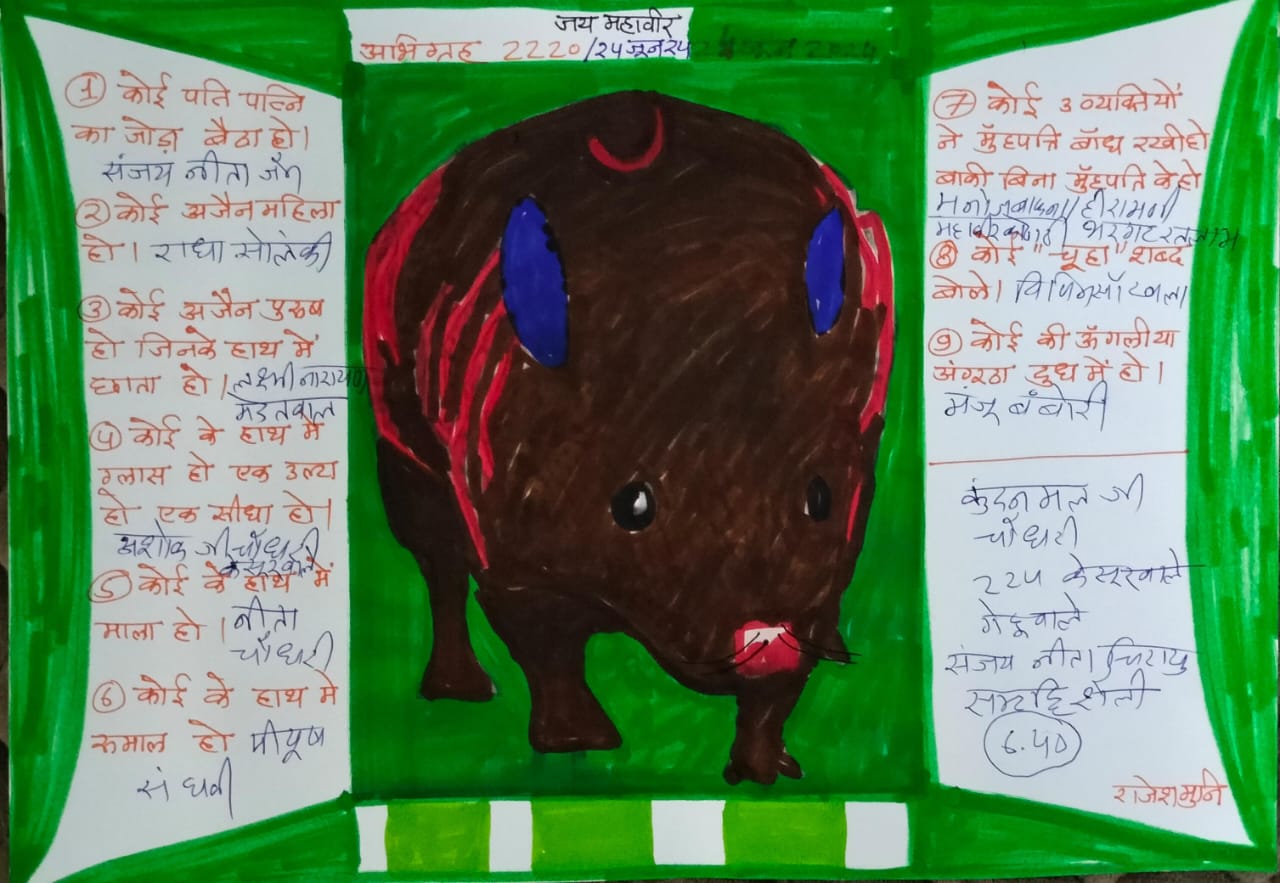 जय महावीर
अभिग्रह 2220/२५ जून २५
① कोई पति पत्नि
का जोड़ा बैठा हो।
संजय नीता जैन
② कोई अजैन महिला
हो। राधा सोलंकी
③ कोई अजैन पुरुष
हो जिनके हाथ में
छाता हो। लक्ष्मीनारायण
मेडतवाल
④ कोई के हाथ में
ग्लास हो एक उल्टा
हो एक सीधा हो।
अशोक जी चौधरी
केसूरवाले
⑤ कोई के हाथ में
माला हो। नीता
चौधरी
⑥ कोई के हाथ मे
रुमाल हो पीयूष
संघवी
⑦ कोई ३ व्यक्तियों
ने मुँहपत्ति बाँध रखीहो
बाकी बिना मुँहपति के हो
हीरामणी
रतलाम
⑧ कोई "चूहा" शब्द
बोले।
⑨ कोई की ऊँगलीया
अंगूठा दुध में हो।
मंजू बंबोरी
कुंदनमल जी
चौधरी
२२५ केसूरवाले
गेहूवाले
संजय नीता चिरायु
समृद्धि शैली
६.५०
राजेशमुनि